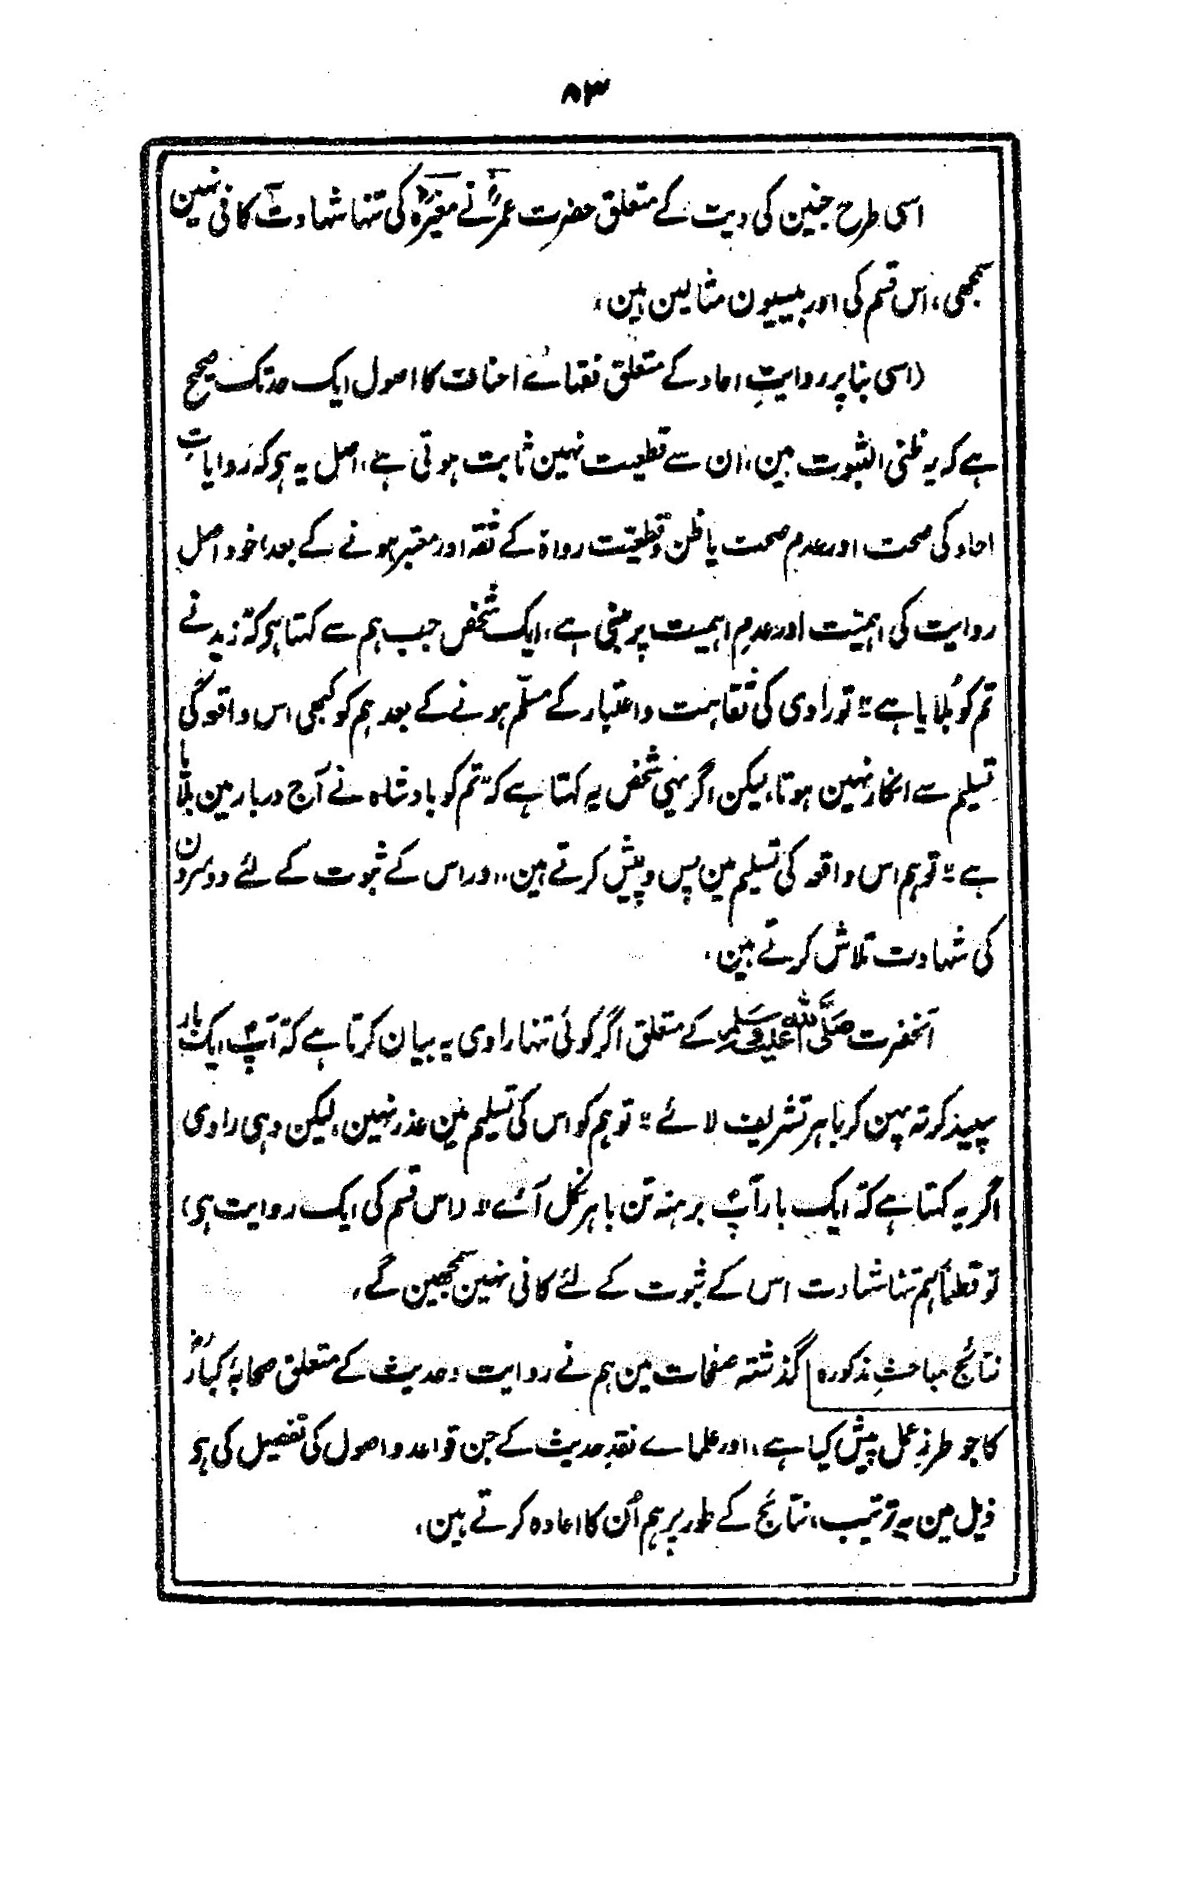 ۸۳
اسی طرح جنین کی دیت کے متعلق حضرت عمرؓ نے مغیرہؓ کی تنہا شہادت کافی نہین
سمجھی، اس قسم کی اور بیسیون مثالین ہین،
(اسی بنا پر روایتِ احاد کے متعلق فقہائے احناف کا اصول ایک حد تک صحیح
ہے کہ یہ ظنی الثبوت ہین، ان سے قطعیت نہین ثابت ہوتی ہے، اصل یہ ہو کہ روایاتِ
احاد کی صحت اور عدمِ صحت یا ظن و قطعیّت رواۃ کے ثقہ اور معتبر ہونے کے بعد، خود اصل
روایت کی اہمیّت اور عدمِ اہمیت پر مبنی ہے، ایک شخص جب ہم سے کہتا ہو کہ "زید نے
تم کو بُلایا ہے" تو راوی کی ثقاہت و اعتبار کے مسلّم ہونے کے بعد ہم کو کبھی اس واقعہ کی
تسلیم سے انکار نہین ہوتا، لیکن اگر یہی شخص یہ کہتا ہے کہ "تم کو بادشاہ نے آج دربار مین بلایا
ہے" تو ہم اس واقعہ کی تسلیم مین پس و پیش کرتے ہین، اور اس کے ثبوت کے لئے دوسرون
کی شہادت تلاش کرتے ہین،
آنحضرت صَلَّی اللہ عَلَیْہِ وَسَلَّم کے متعلق اگر کوئی تنہا راوی یہ بیان کرتا ہے کہ "آپؐ ایک بار
سپید کرتہ پہن کر باہر تشریف لائے" تو ہم کو اس کی تسلیم مین عذر نہین، لیکن وہی راوی
اگر یہ کہتا ہے کہ "ایک بار آپؐ برہنہ تن باہر نکل آئے" (اس قسم کی ایک روایت ہو)
تو قطعاً ہم تنہا شہادت اس کے ثبوت کے لئے کافی نہین سمجھین گے،
نتائج مباحثِ مذکورہ گذشتہ صفحات مین ہم نے روایت و حدیث کے متعلق صحابۂ کبارؓ
کا جو طرزِ عمل پیش کیا ہے، اور علمائے نقدِ حدیث کے جن قواعد و اصول کی تفصیل کی ہو
ذیل مین بہ ترتیب، نتائج کے طور پر ہم اُن کا اعادہ کرتے ہین،